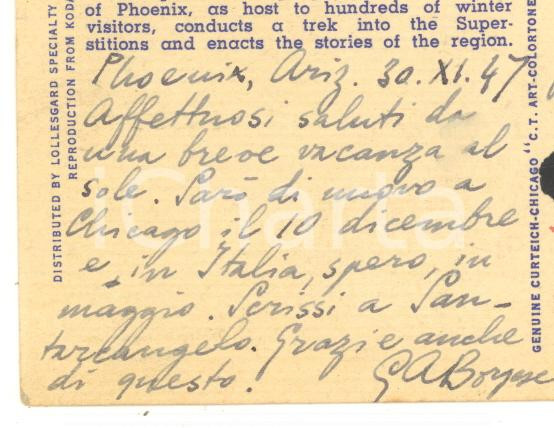 of Phoenix, as host to hundreds of winter
visitors, conducts a trek into the Super-
stitions and enacts the stories of the region.
Phoenix, Ariz. 30.XI.47
Affettuosi saluti da
una breve vacanza al
sole. Sarò di nuovo a
Chicago il 10 dicembre
e, in Italia, spero, in
maggio. Scrissi a San-
tarcangelo. Grazie anche
di questo.
G A Borgese
DISTRIBUTED BY LOLLESGARD SPECIALTY
REPRODUCTION FROM KODA
GENUINE CURTEICH-CHICAGO "C.T. ART-COLORTONE
iCharta